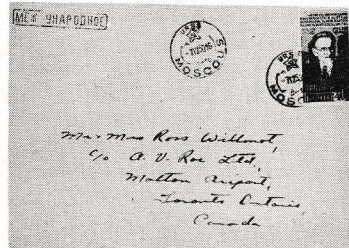 МЕЖДУНАРОДНОЕ
MOSCOU
MOSCOU
Mr + Mrs Ross Willmot,
c/o A. V. Roe Ltd,
Malton Airport,
Toronto Ontario,
Canada